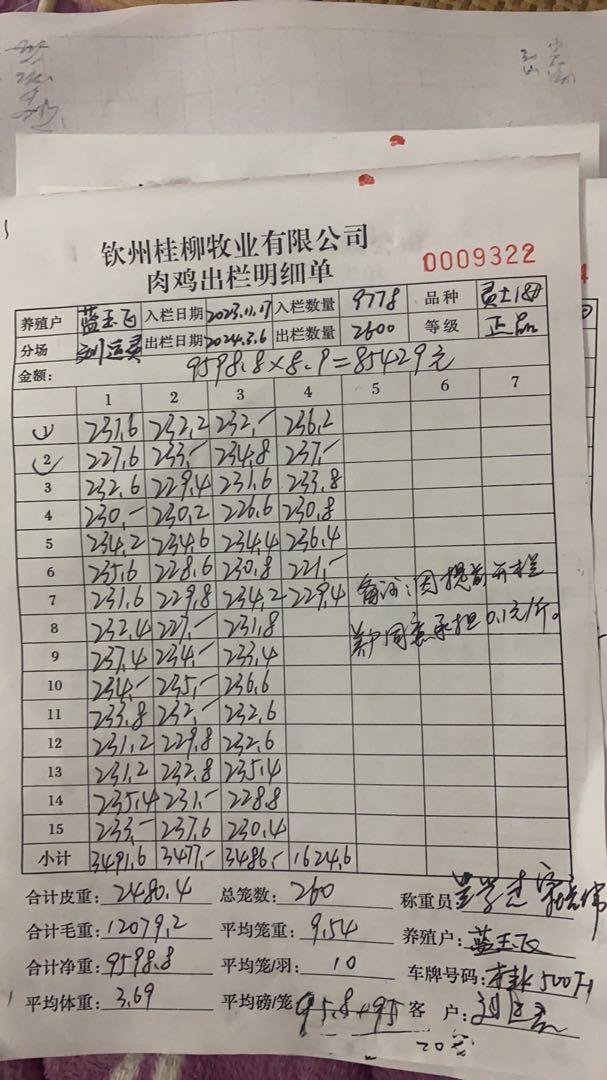 钦州桂柳牧业有限公司
肉鸡出栏明细单
0009322
养殖户 蓝玉飞 入栏日期 2023.11.17 入栏数量 9778 品种
分场 出栏日期 2024.3.6 出栏数量 2600 等级 正品
金额: 9598.8×8.9=85429元
1 2 3 4 5 6 7
1 231.6 232.2 232.- 236.2
2 227.6 233.- 234.8 237.-
3 232.6 229.4 231.6 233.8
4 230.- 230.2 226.6 230.8
5 234.2 234.6 234.4 236.4
6 235.6 228.6 230.8 221.-
7 231.6 229.8 234.2 229.4 备注:因提前开栏
8 232.4 227.- 231.8 养户同意承担0.1元/斤。
9 237.4 234.- 233.4
10 234.- 235.- 236.6
11 233.8 232.- 232.6
12 231.2 229.8 232.6
13 231.2 232.8 235.4
14 235.4 231.- 228.8
15 233.- 237.6 230.4
小计 3491.6 3477.- 3486.- 1624.6
合计皮重: 2480.4 总笼数: 260 称重员
合计毛重: 12079.2 平均笼重: 9.54 养殖户: 蓝玉飞
合计净重: 9598.8 平均笼/羽: 10 车牌号码:
平均体重: 3.69 平均磅/笼 95.8+95 客 户: